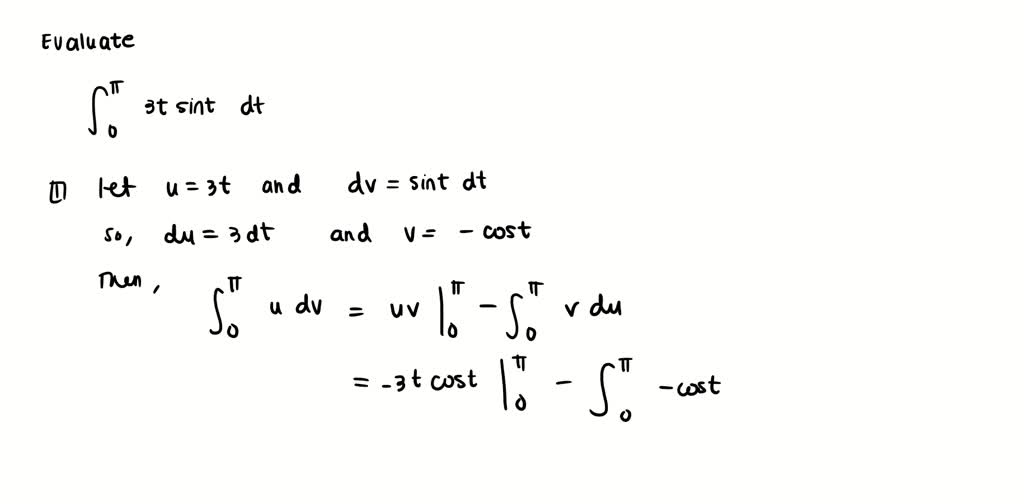 Evaluate
∫₀^π 3t sint dt
① let u = 3t and dv = sint dt
so, du = 3 dt and v = - cost
Then, ∫₀^π u dv = uv |₀^π - ∫₀^π v du
= -3t cost |₀^π - ∫₀^π -cost